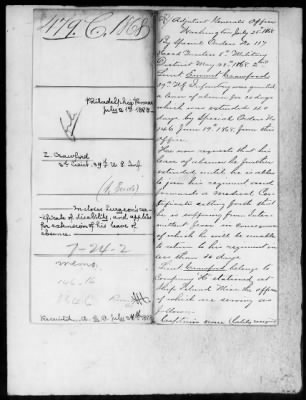 479. C. 1868
Philadelphia Penna
July 21st 1868
E. Crawford
2d Lieut. 39th U.S. Inf.
Incloses Surgeon's cer-
tificate of disability, and applies
for extension of his leave of
absence.
7-24-2
Adjutant General's Office
Washington July 25. 1868
By Special Orders No 117
Head Quarters 5th Military
District May 1868. 2nd
Lieut Emmet Crawford
39th U.S. Infantry was granted
a leave of absence for 30 days
which was extended 30
days by Special Orders No
146 June 19th 1868, from this
office.
He now requests that his
leave of absence be further
extended until he is able
to join his regiment and
forwards a medical Cer-
tificate setting forth that
he is suffering from Inter-
mittent fever in consequence
of which he will be unable
to return to his regiment in
less than 30 days.
Lieut Crawford belongs to
Company stationed, at
Ship Island Miss. the officers
of which are serving as
follows:
Captain